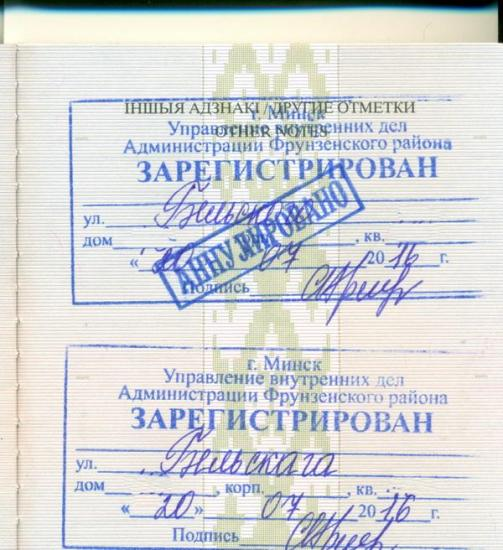 ІНШЫЯ АДЗНАКІ / ДРУГИЕ ОТМЕТКИ
OTHER NOTES
г. Минск
Управление внутренних дел
Администрации Фрунзенского района
ЗАРЕГИСТРИРОВАН
ул. Бельскага
АННУЛИРОВАНО
дом , кв.
« 20 » 07 2016 г.
Подпись
г. Минск
Управление внутренних дел
Администрации Фрунзенского района
ЗАРЕГИСТРИРОВАН
ул. Бельскага
дом , корп. , кв.
« 20 » 07 2016 г.
Подпись